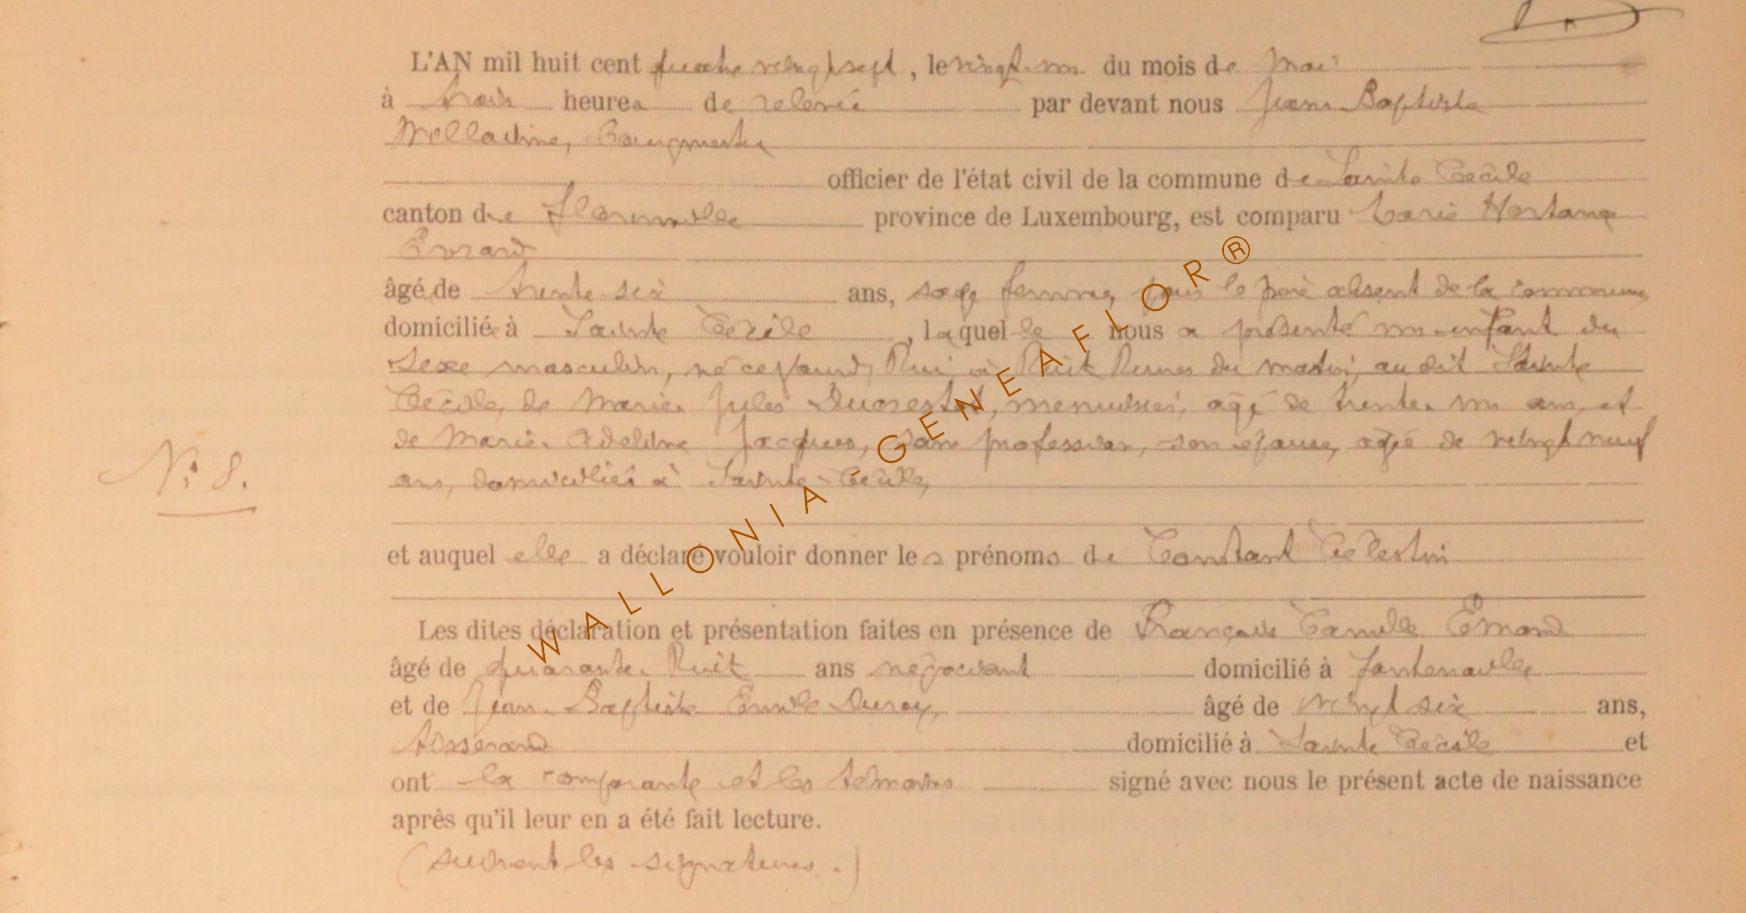 L'AN mil huit cent quatre vingt sept, le vingt-un du mois de Mai
à trois heures de relevée par devant nous Jean Baptiste
bourgmestre
officier de l'état civil de la commune de Sainte Cécile
canton de Florenville province de Luxembourg, est comparu Marie Hortense
Evrard
âgé de trente six ans, sage femme, pour le père absent de la commune
domiciliée à Sainte Cécile, laquelle nous a présenté un enfant du
sexe masculin, né cejourd'hui à huit heures du matin, au dit Sainte
Cécile, de Marie Jules menuisier, âgé de trente un ans, et
de Marie Adeline Jacques, sans profession, son épouse, âgée de vingt neuf
ans, domiciliés à Sainte-Cécile,
N° 8.
et auquel elle a déclaré vouloir donner les prénoms de Constant Célestin
Les dites déclaration et présentation faites en présence de François Camille Emond
âgé de quarante huit ans négociant domicilié à Fontenoille
et de Jean Baptiste Emile Duroy, âgé de vingt six ans,
tisserand domicilié à Sainte Cécile et
ont la comparante et les témoins signé avec nous le présent acte de naissance
après qu'il leur en a été fait lecture.
(suivent les signatures.)
WALLONIA-GENEAFLOR®